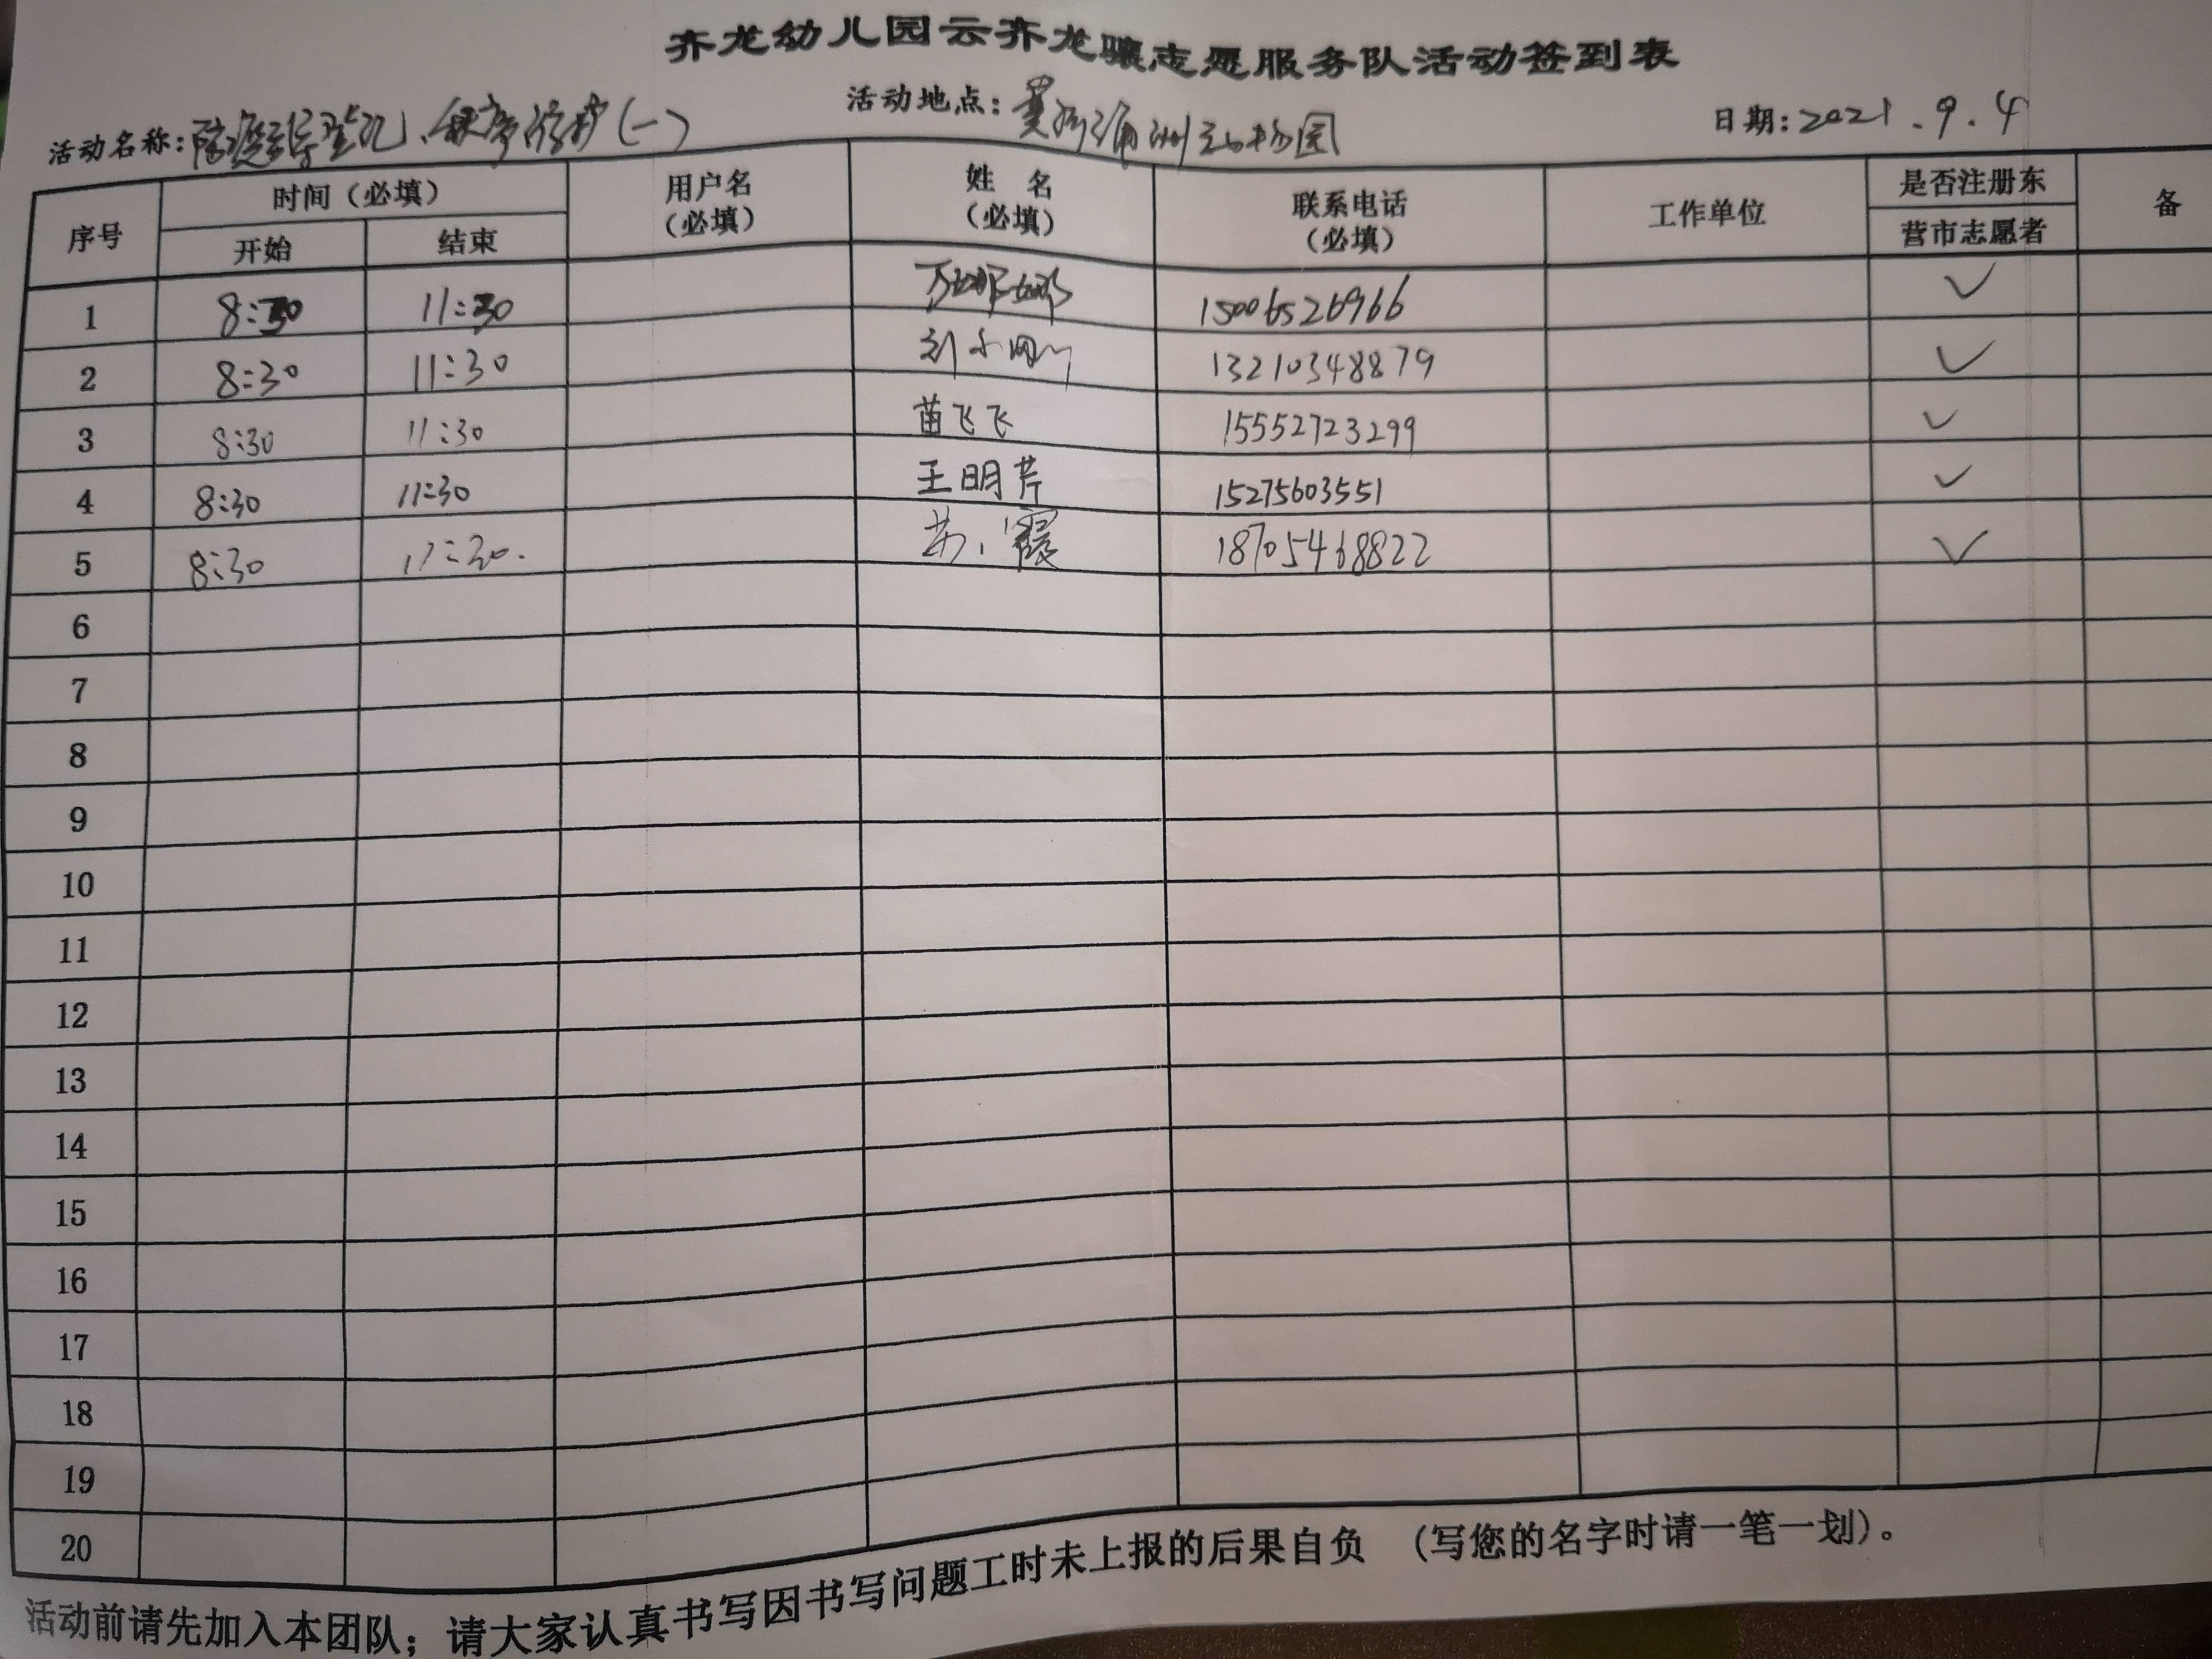 齐龙幼儿园云齐龙骧志愿服务队活动签到表
活动名称: 登记、秩序维护(一)
活动地点: 动物园
日期:2021.9.4
序号 时间(必填) 用户名(必填) 姓 名(必填) 联系电话(必填) 工作单位 是否注册东营市志愿者 备
开始 结束
1 8:30 11:30 15006526966 ✓
2 8:30 11:30 13210348879 ✓
3 8:30 11:30 苗飞飞 15552723299 ✓
4 8:30 11:30 王明芹 15275603551 ✓
5 8:30 11:30. 霞 18705468822 ✓
6
7
8
9
10
11
12
13
14
15
16
17
18
19
20
活动前请先加入本团队；请大家认真书写因书写问题工时未上报的后果自负 (写您的名字时请一笔一划)。